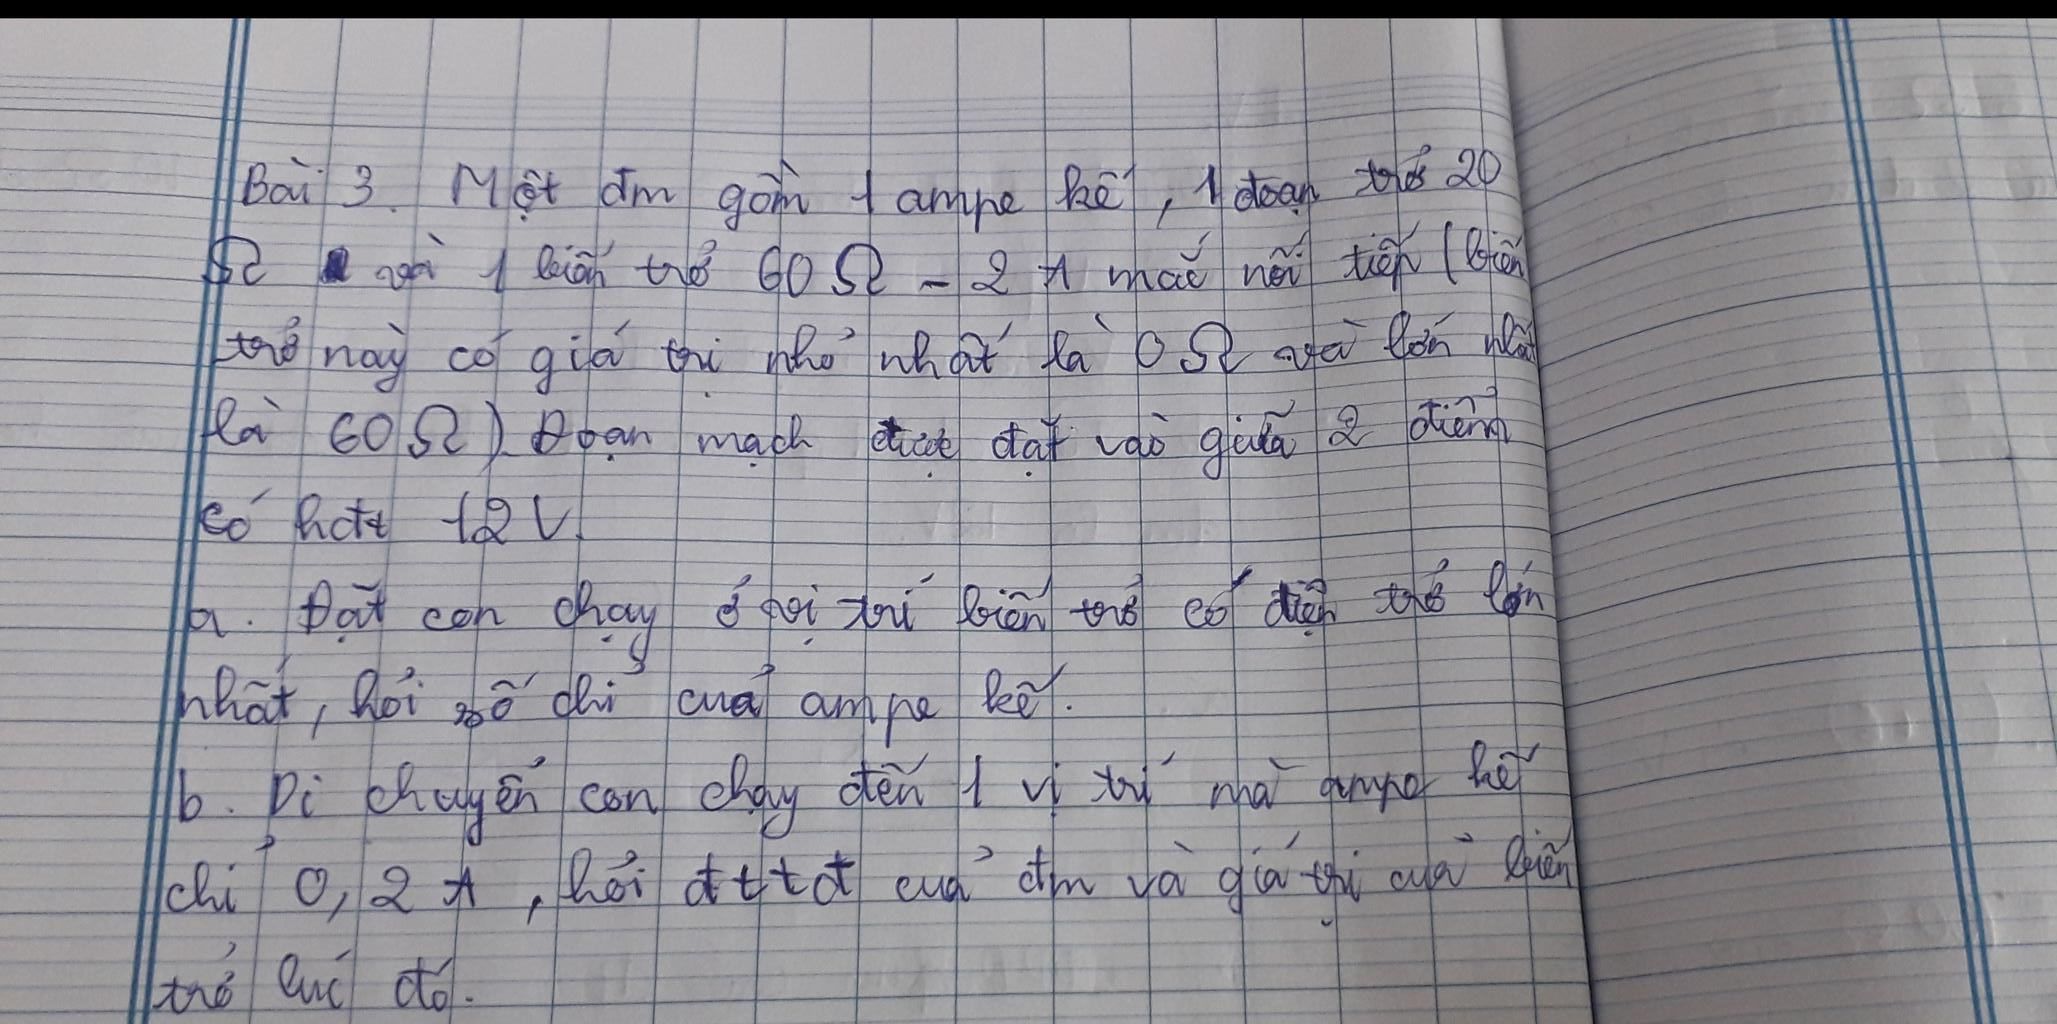 Bài 3. Một đm gồm 1 ampe kế, 1 đoạn trở 20
Ω và 1 biến trở 60Ω - 2A mắc nối tiếp (biến
trở này có giá trị nhỏ nhất là 0Ω và lớn nhất
là 60Ω). Đoạn mạch được đặt vào giữa 2 điểm
có hđt 12V.
a. Đặt con chạy ở vị trí biến trở có điện trở lớn
nhất, hỏi số chỉ của ampe kế.
b. Di chuyển con chạy đến 1 vị trí mà ampe kế
chỉ 0,2A, hỏi đttđ của đm và giá trị của biến
trở lúc đó.